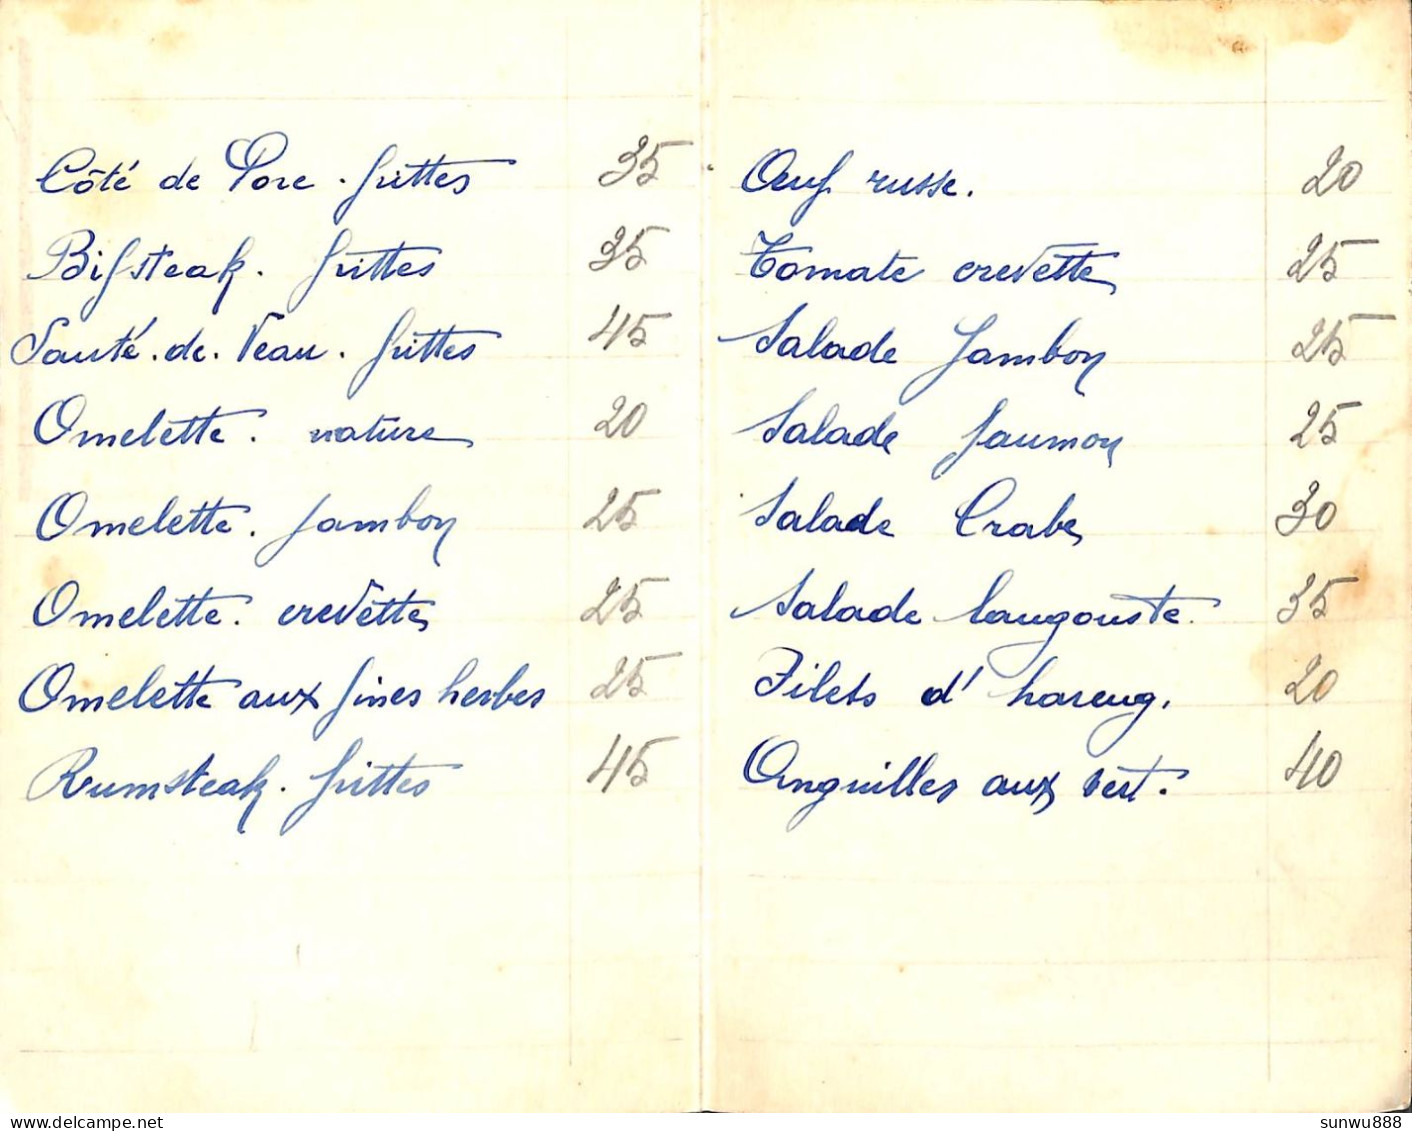 Côté de Porc. frittes 35
Bifsteak. frittes 35
Sauté. de. Veau. frittes 45
Omelette. nature 20
Omelette. jambon 25
Omelette. crevettes 25
Omelette aux fines herbes 25
Rumsteak. frittes 45
Oeuf russe. 20
Tomate crevettes 25
Salade Jambon 25
Salade Saumon 25
Salade Crabe 30
Salade langouste. 35
Filets d'hareng. 20
Anguilles aux vert. 40
delcampe.net
sunwu888